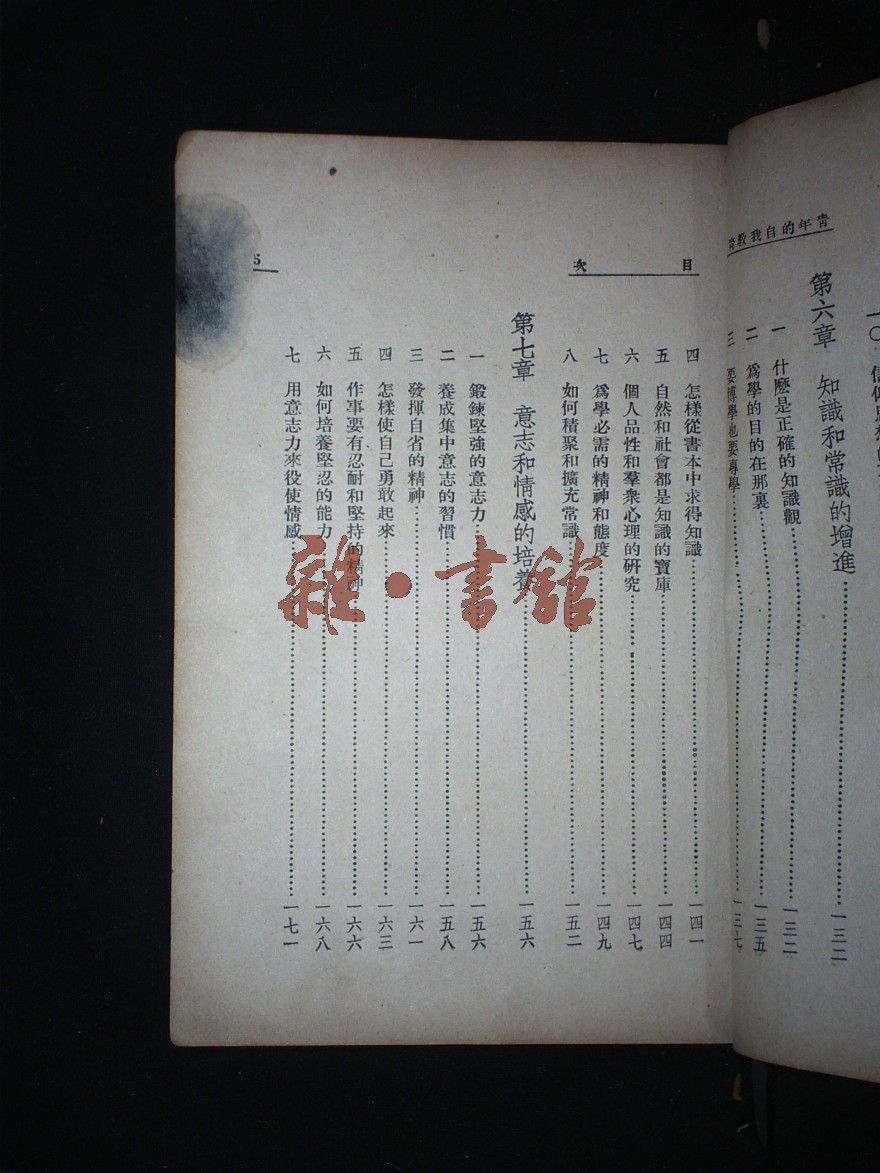 青年的自我教育
一〇 信仰思想的
第六章 知識和常識的增進……一三二
一 什麽是正確的知識觀……一三二
二 爲學的目的在那裏……一三五
三 要博學也要專學……一三七
目次
四 怎樣從書本中求得知識……一四一
五 自然和社會都是知識的寶庫……一四四
六 個人品性和羣衆心理的研究……一四七
七 爲學必需的精神和態度……一四九
八 如何積聚和擴充常識……一五二
第七章 意志和情感的培養……一五六
一 鍛鍊堅強的意志力……一五六
二 養成集中意志的習慣……一五八
三 發揮自省的精神……一六一
四 怎樣使自己勇敢起來……一六三
五 作事要有忍耐和堅持的精神……一六六
六 如何培養堅忍的能力……一六八
七 用意志力來役使情感……一七一
5
雜·書館